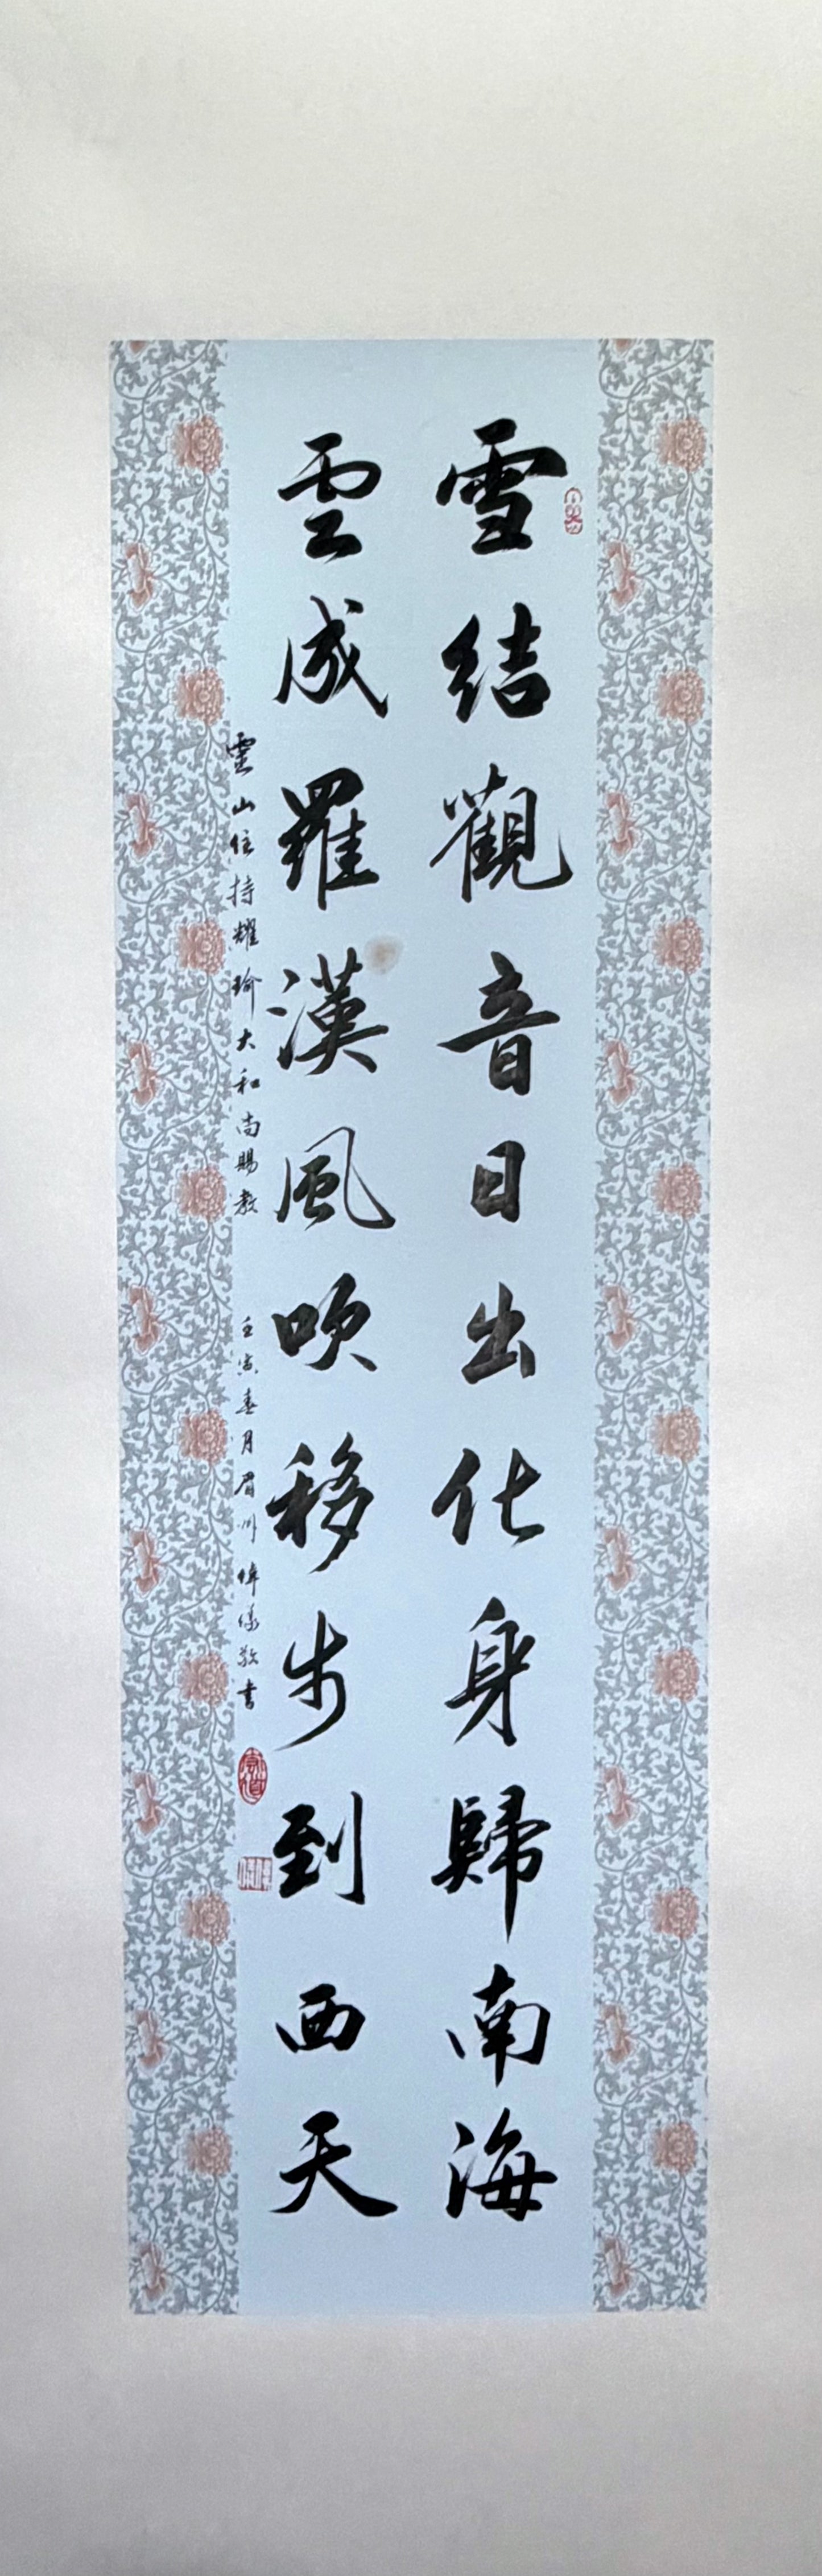 雪結觀音日出化身歸南海
雲成羅漢風吹移步到西天
靈山住持耀瑜大和尚賜教
壬寅春月眉州 敬書